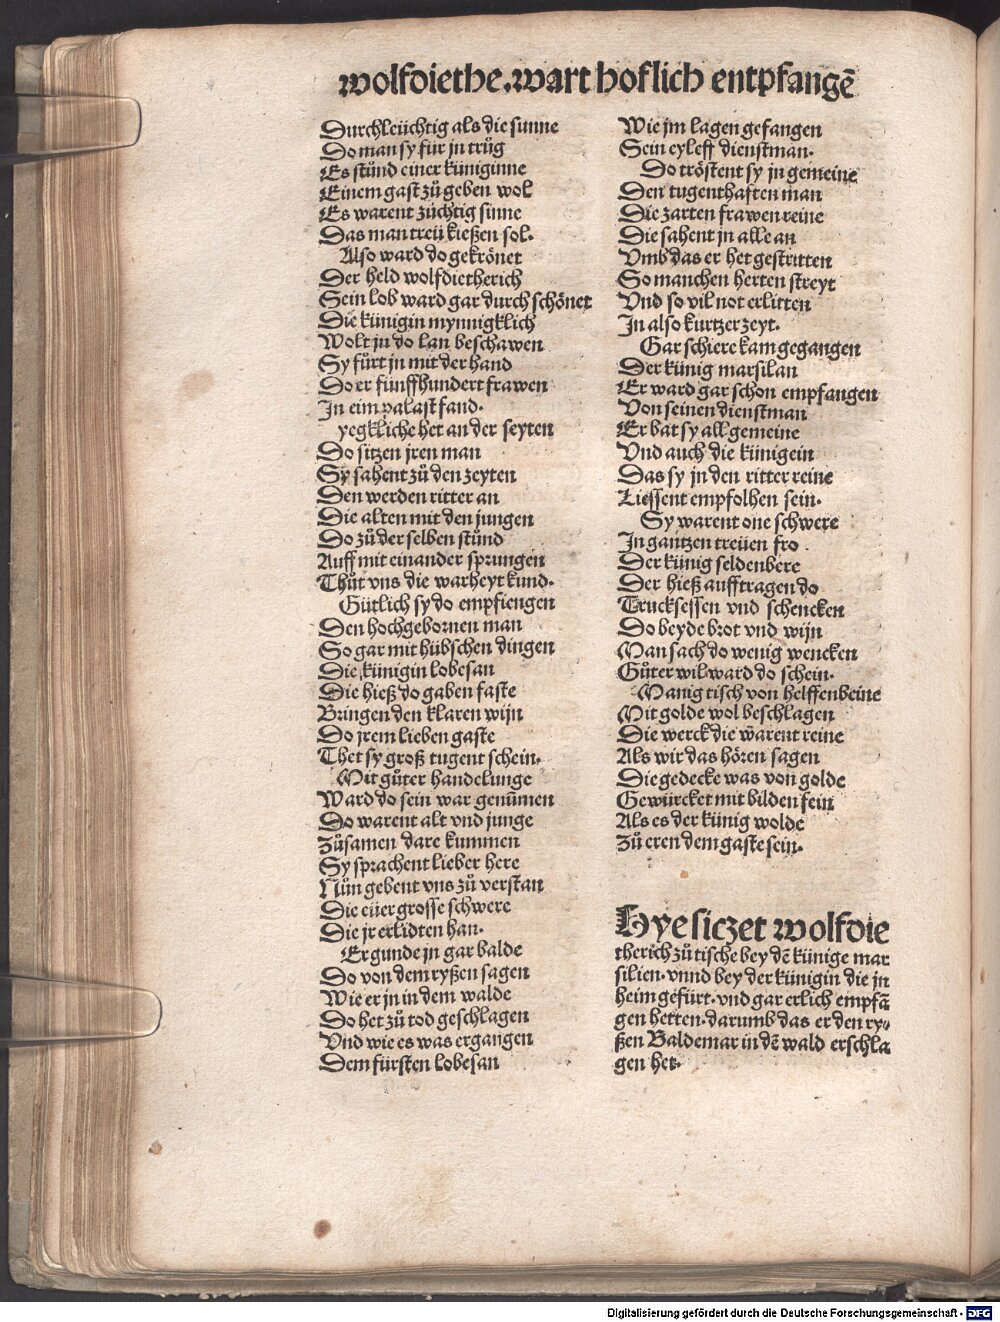 wolfdiethe.wart hoflich entpfangē
Durchleüchtig als die sunne
Do man sy für jn trůg
Es stůnd einer küniginne
Einem gast zů geben wol
Es warent züchtig sinne
Das man treü kießen sol.
Also ward do gekrönet
Der held wolfdietherich
Sein lob ward gar durch schönet
Die künigin mynnigklich
Wolt jn do lan beschawen
Sy fürt jn mit der hand
Do er fünffhundert frawen
In eim palast fand.
yegkliche het an der seyten
Do sitzen jren man
Sy sahent zů den zeyten
Den werden ritter an
Die alten mit den jungen
Do zů der selben stůnd
Auff mit einander sprungen
Thůt vns die warheyt kund.
Gütlich sy do empfiengen
Den hochgebornen man
So gar mit hübschen dingen
Die künigin lobesan
Die hieß do gaben faste
Bringen den klaren wijn
Do jrem lieben gaste
Thet sy groß tugent schein.
Mit gůter handelunge
Ward do sein war genūmen
Do warent alt vnd junge
Zůsamen dare kummen
Sy sprachent lieber here
Nůn gebent vns zů verstan
Die eüer grosse schwere
Die jr erlidten han.
Er gunde jn gar balde
Do von dem ryßen sagen
Wie er jn in dem walde
Do het zů tod geschlagen
Vnd wie es was ergangen
Dem fürsten lobesan
Wie jm lagen gefangen
Sein eyleff dienstman.
Do tröstent sy jn gemeine
Den tugenthaften man
Die zarten frawen reine
Die sahent jn alle an
Vmb das er het gestritten
So manchen herten streyt
Vnd so vil not erlitten
In also kurtzer zeyt.
Gar schiere kam gegangen
Der künig marsilan
Er ward gar schon empfangen
Von seinen dienstman
Er bat sy all gemeine
Vnd auch die künigein
Das sy jn den ritter reine
Liessent empfolhen sein.
Sy warent one schwere
In gantzen treüen fro.
Der künig seldenbere
Der hieß aufftragen do
Trucksessen vnd schencken
Do beyde brot vnd wijn
Man sach do wenig wencken
Gůter wil ward do schein.
Manig tisch von helffenbeine
Mit golde wol beschlagen
Die werck die warent reine
Als wir das hören sagen
Die gedecke was von golde
Gewürcket mit bilden fein
Als es der künig wolde
Zů eren dem gaste sein.
Hye siczet wolfdie
therich zů tische bey dē künige mar
silien. vnnd bey der künigin die jn
heim gefürt. vnd gar erlich empfā
gen hetten. darumb das er den ry⸗
ßen Baldemar in dē wald erschla
gen het.
Digitalisierung gefördert durch die Deutsche Forschungsgemeinschaft - DFG